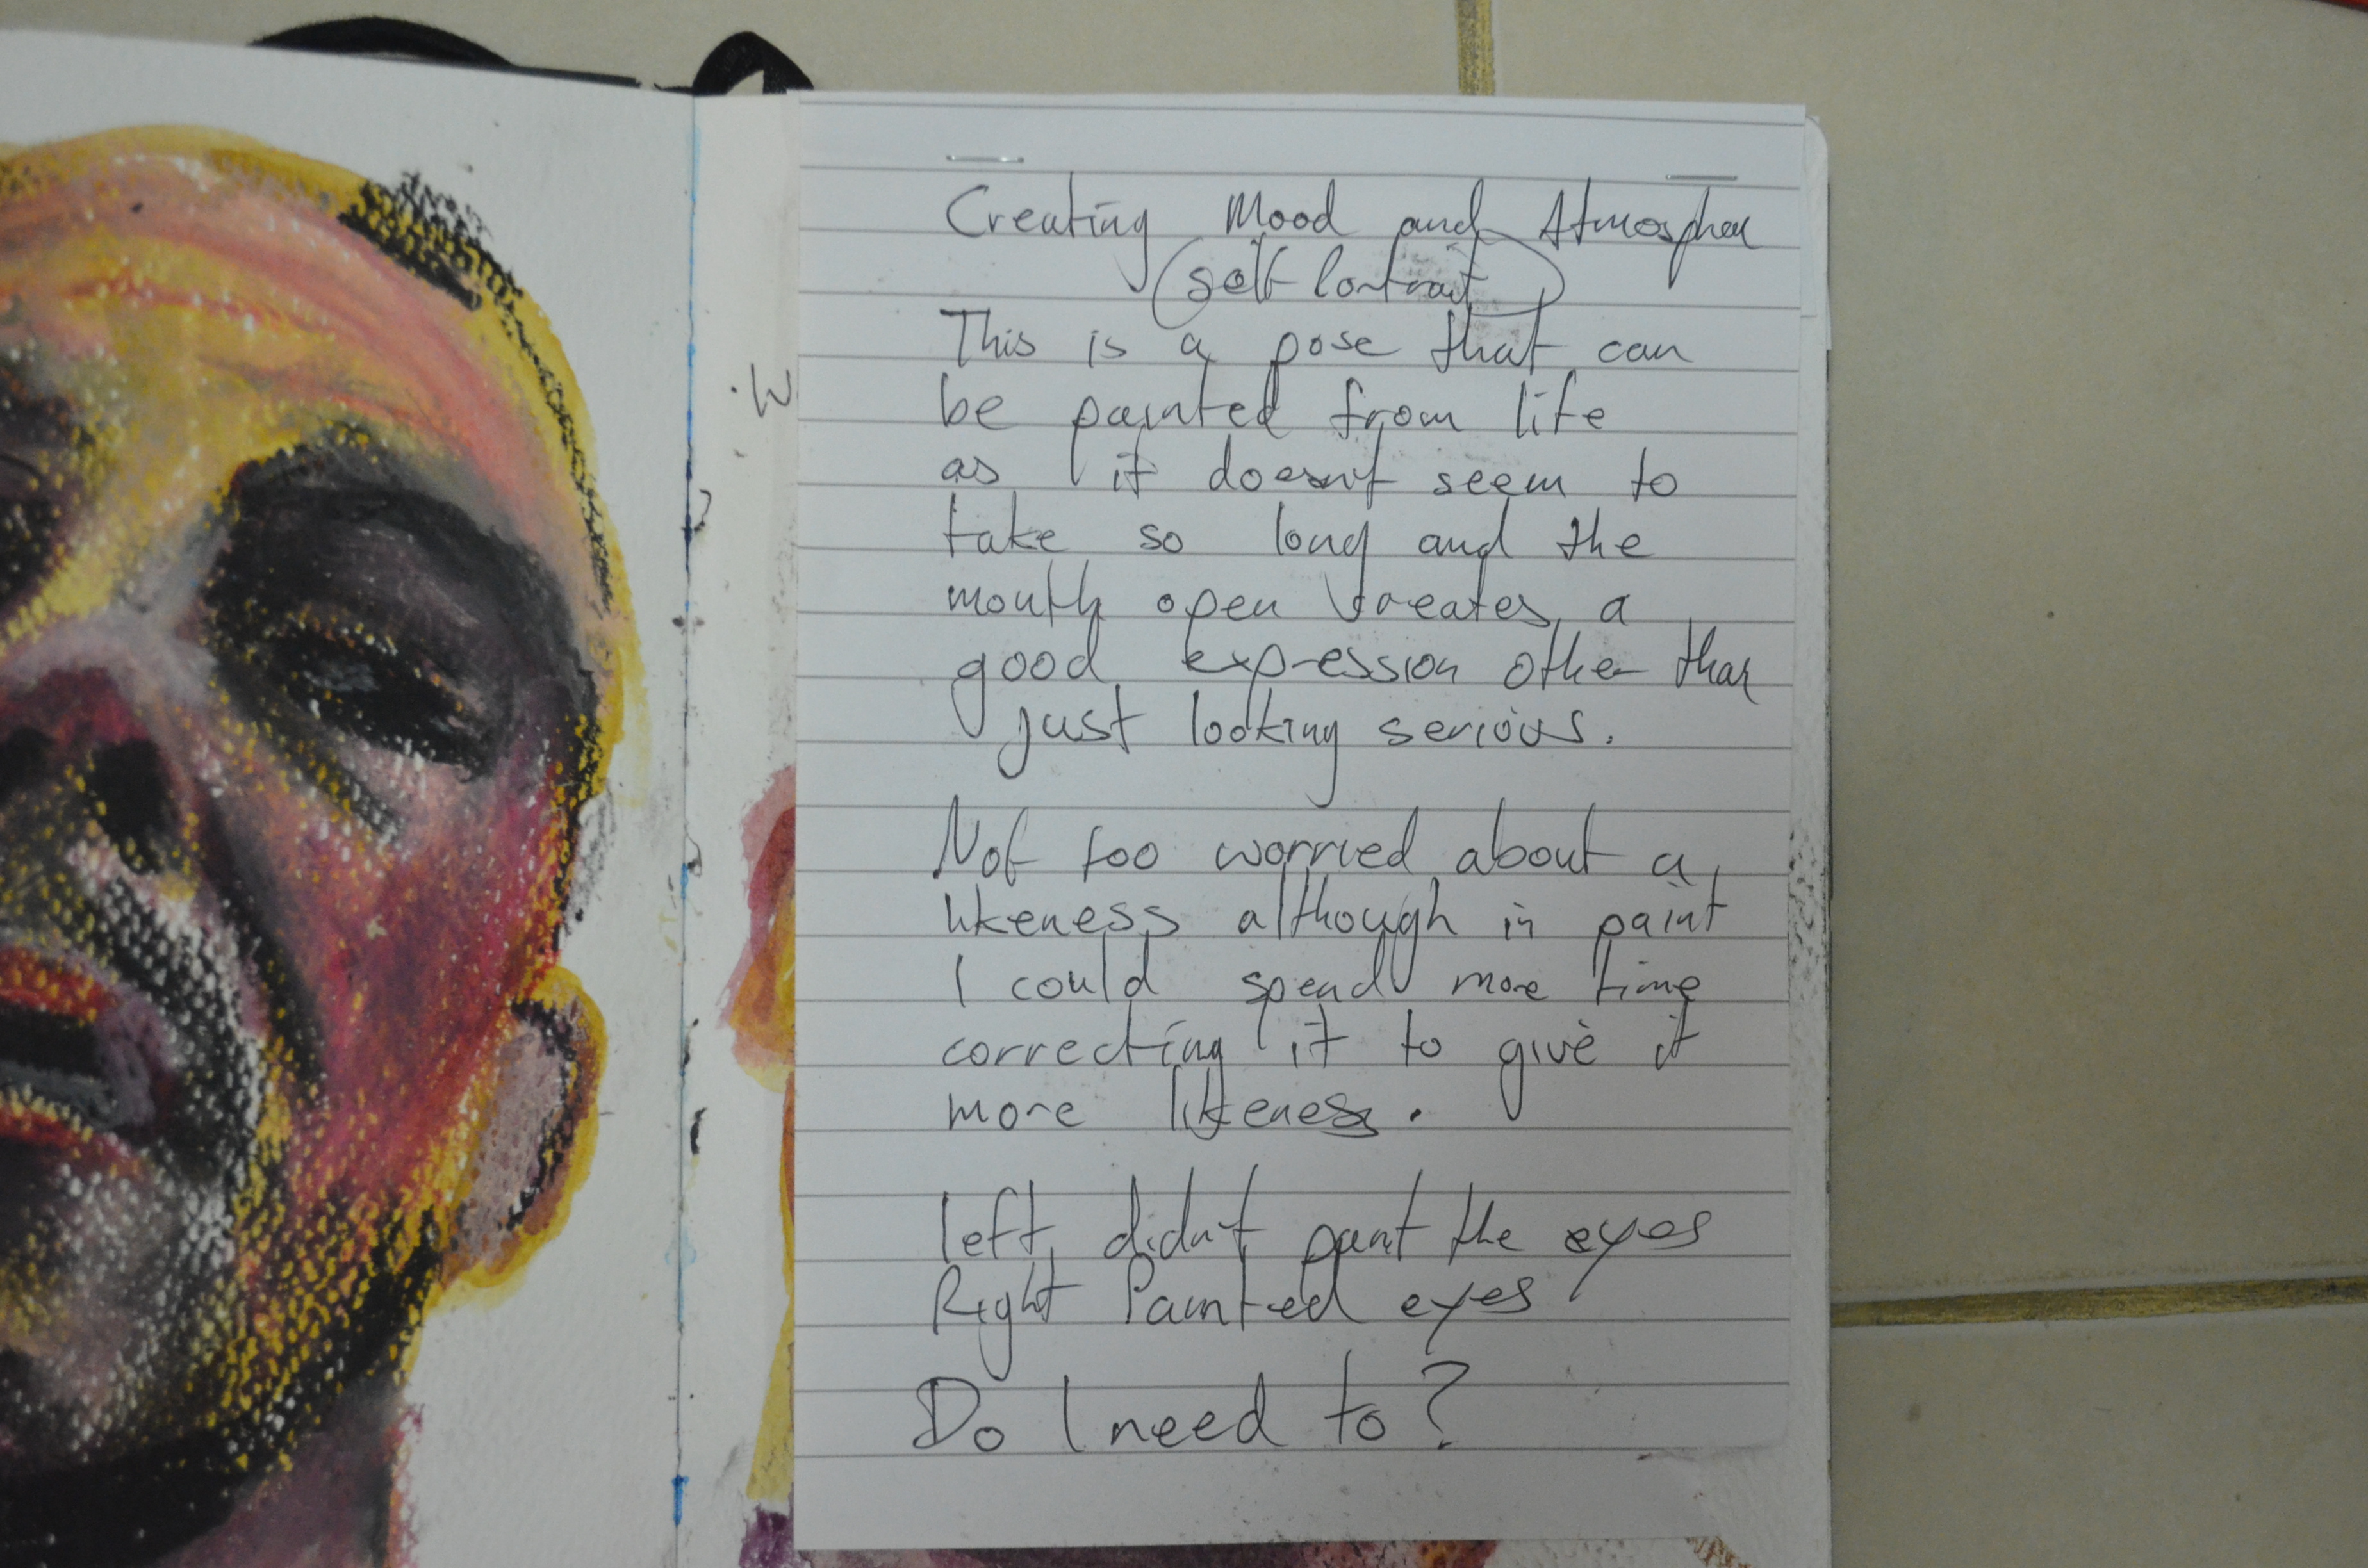 Creating Mood and Atmospher
self Portrait
This is a pose that can
be painted from life
as it doesn't seem to
take so long and the
mouth open creates a
good expression other than
just looking serious.
Not too worried about a
likeness although in paint
I could spend more time
correcting it to give it
more likeness.
left didn't paint the eyes
Right Painted eyes
Do I need to?